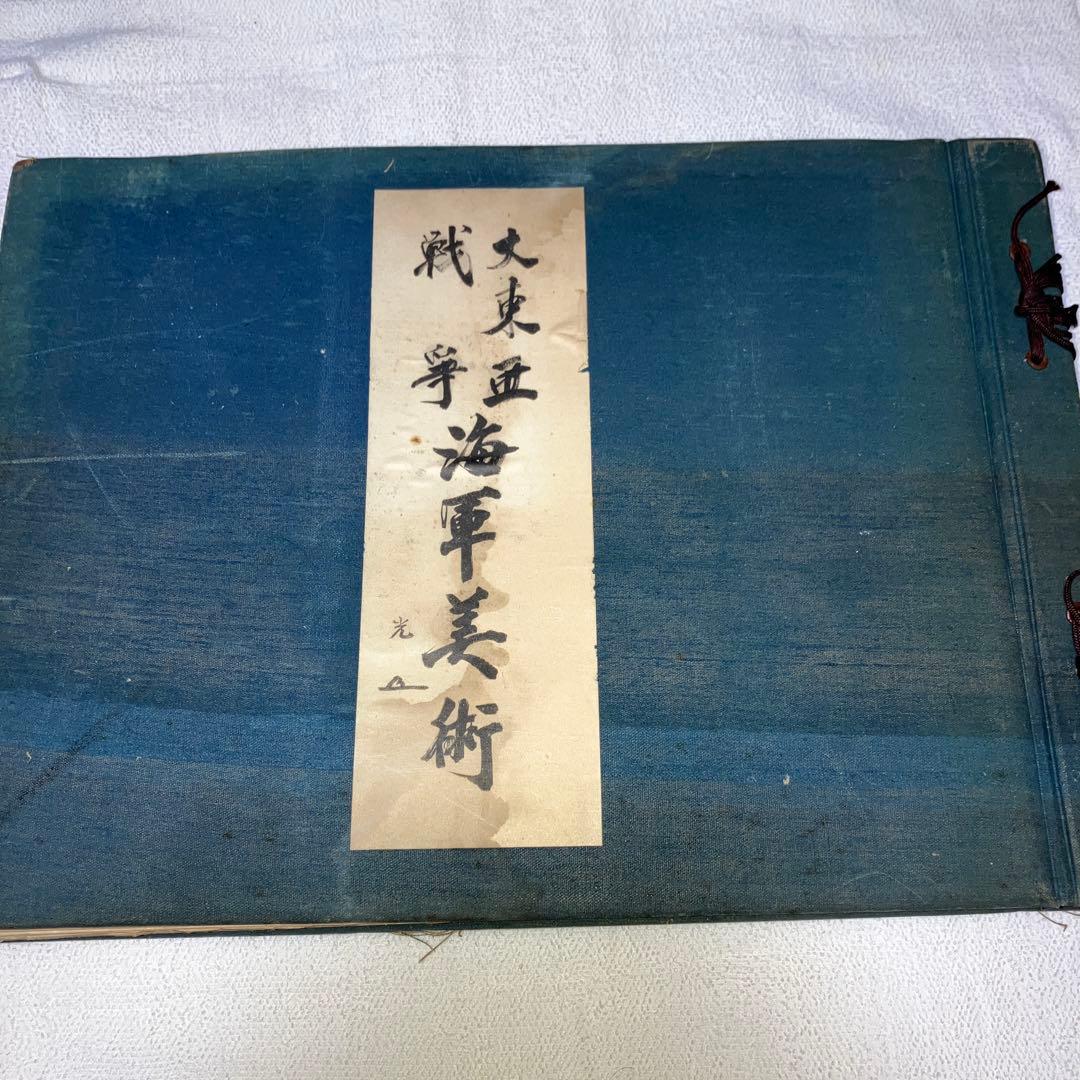 大東亜
戦争
海軍美術
光